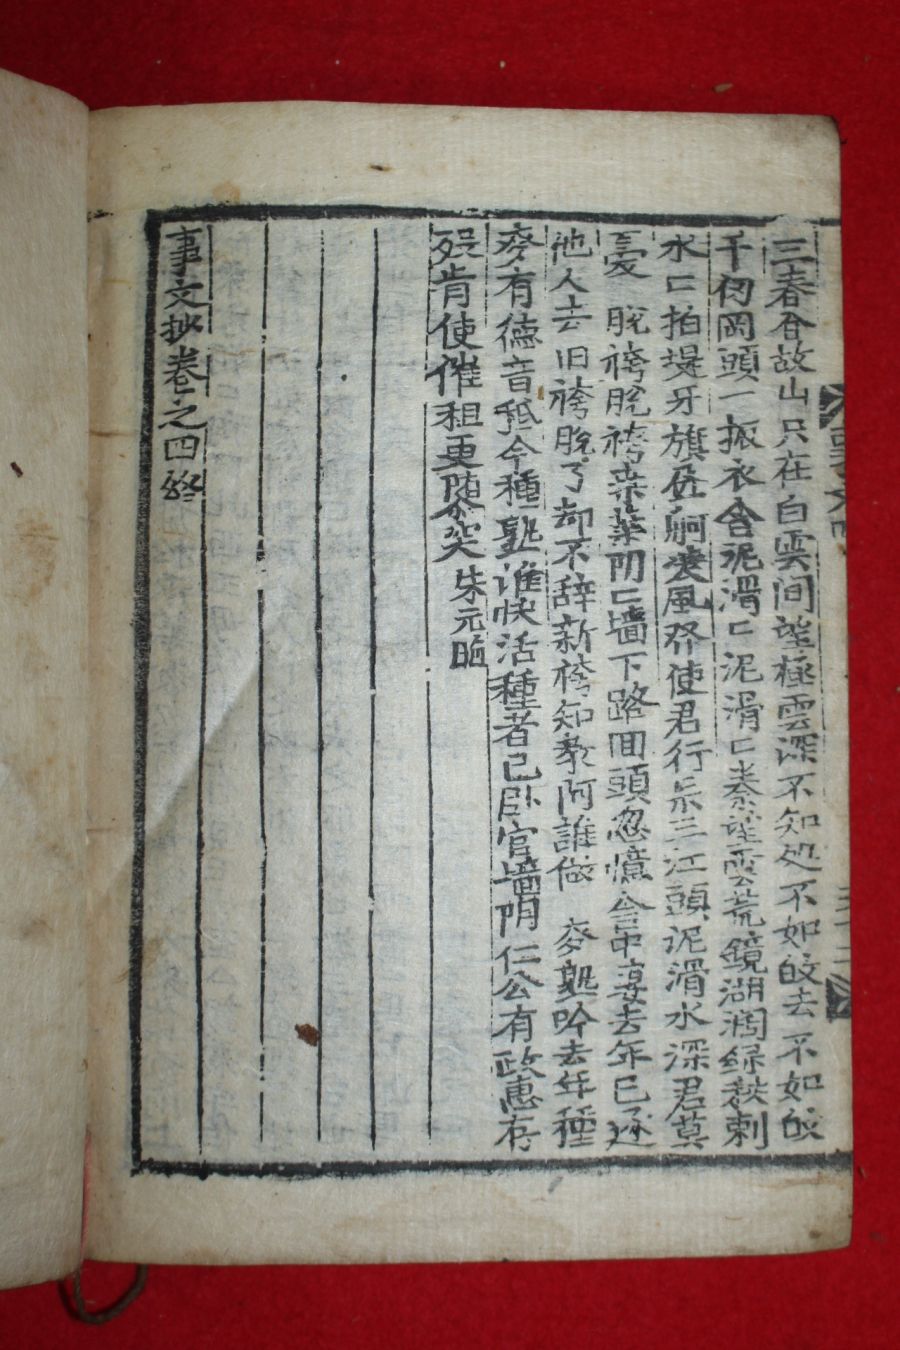 三春合故山只在白雲间望極雲深不知处不如皈去不如皈
千仞岡頭一振衣 舍泥滑〻泥滑〻秦望雲荒鏡湖濶緑秧刺
水〻拍堤牙旗舞風 使君行示三江頭泥滑水深君莫
憂 脱袴脱袴桒葉阴〻墙下路回頭忽憶舍中妻去年已逐
他人去旧袴脱了却不辞新袴知教阿誰做 麥熟吟去年種
麥有德音 今種熟谁快活種者已卧官墙阴仁公有政惠存
殁肯使催租更随哭 朱元晦
事文抄卷之四終
事文
三十二